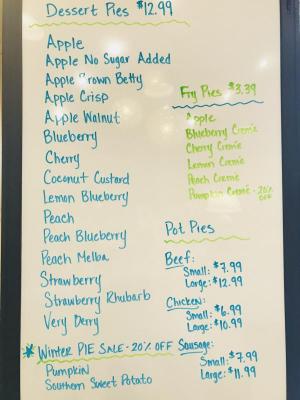 Dessert Pies $12.99
Apple
Apple No Sugar Added
Apple Brown Betty
Apple Crisp
Apple Walnut
Blueberry
Cherry
Coconut Custard
Lemon Blueberry
Peach
Peach Blueberry
Peach Melba
Strawberry
Strawberry Rhubarb
Very Berry
* Winter PIE SALE - 20% OFF
Pumpkin
Southern Sweet Potato
Fry Pies $3.39
Apple
Blueberry Creme
Cherry Creme
Lemon Creme
Peach Creme
Pumpkin Creme - 20%
OFF
Pot Pies
Beef:
Small: $7.99
Large: $12.99
Chicken:
Small: $6.99
Large: $10.99
Sausage:
Small: $7.99
Large: $11.99